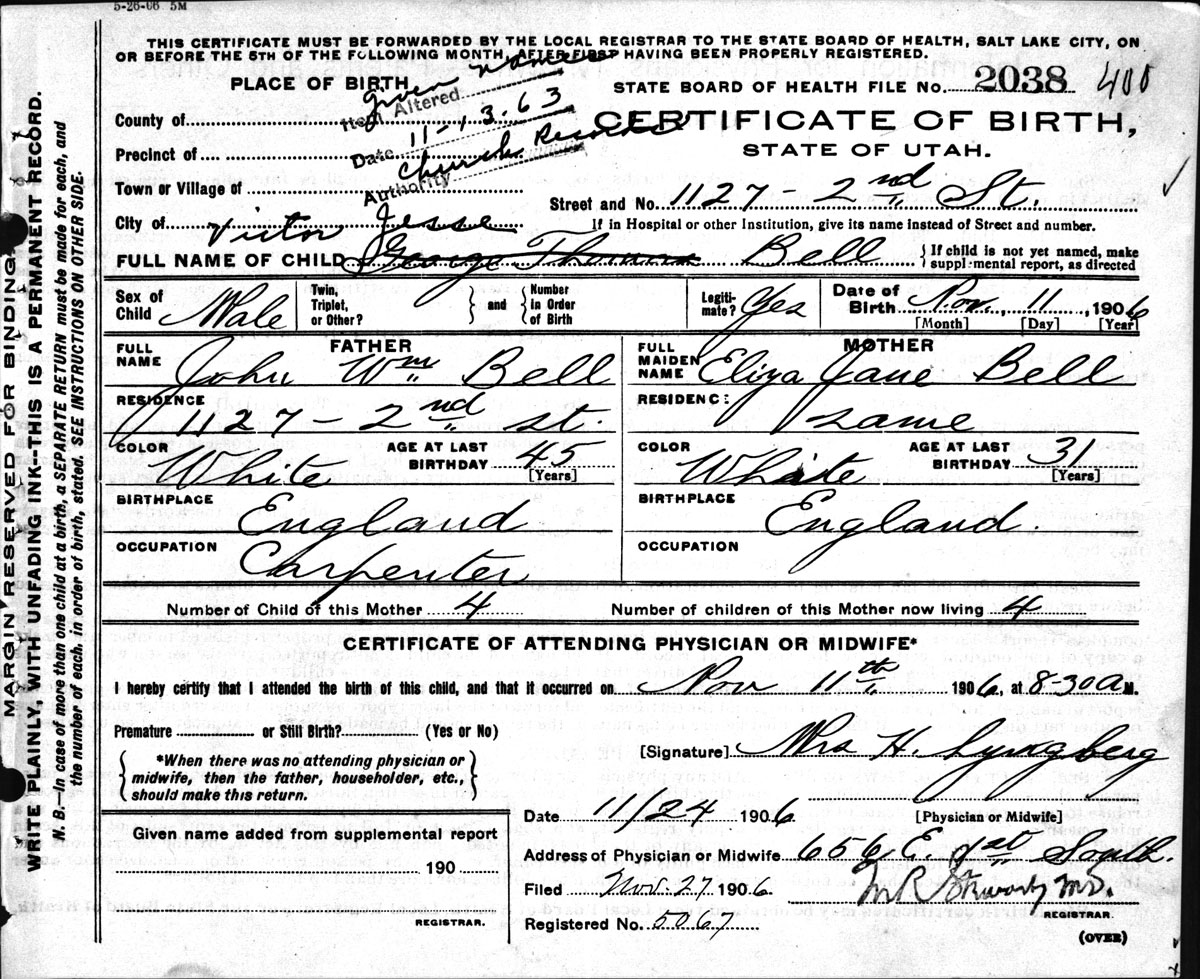 5-26-06 5M
THIS CERTIFICATE MUST BE FORWARDED BY THE LOCAL REGISTRAR TO THE STATE BOARD OF HEALTH, SALT LAKE CITY, ON
OR BEFORE THE 5TH OF THE FOLLOWING MONTH, AFTER FIRST HAVING BEEN PROPERLY REGISTERED.
PLACE OF BIRTH
STATE BOARD OF HEALTH FILE No. 2038 400
Item Altered given name
Date 11-13-63
Authority Church Records
CERTIFICATE OF BIRTH,
STATE OF UTAH.
County of
Precinct of
Town or Village of
Street and No. 1127 - 2nd St.
City of
If in Hospital or other Institution, give its name instead of Street and number.
Victor Jesse
FULL NAME OF CHILD George Thomas Bell
If child is not yet named, make supplemental report, as directed
Sex of Child Male
Twin, Triplet, or Other? and Number in Order of Birth
Legitimate? Yes
Date of Birth Nov. 11, 1906
[Month] [Day] [Year]
FATHER
FULL NAME John Wm Bell
MOTHER
FULL MAIDEN NAME Eliza Jane Bell
RESIDENCE 1127 - 2nd St.
RESIDENCE same
COLOR White AGE AT LAST BIRTHDAY 45 [Years]
COLOR White AGE AT LAST BIRTHDAY 31 [Years]
BIRTHPLACE England
BIRTHPLACE England.
OCCUPATION Carpenter
OCCUPATION
Number of Child of this Mother 4 Number of children of this Mother now living 4
CERTIFICATE OF ATTENDING PHYSICIAN OR MIDWIFE*
I hereby certify that I attended the birth of this child, and that it occurred on Nov 11th 1906, at 8-30 A M.
Premature or Still Birth? (Yes or No)
[Signature] Mrs H. Lyngberg
*When there was no attending physician or
midwife, then the father, householder, etc.,
should make this return.
Date 11/24 1906
[Physician or Midwife]
Given name added from supplemental report
190
REGISTRAR.
Address of Physician or Midwife 656 E. 1st South.
Filed Nov. 27 1906
M.D.
REGISTRAR.
Registered No. 5067
(OVER)
MARGIN RESERVED FOR BINDING
WRITE PLAINLY, WITH UNFADING INK--THIS IS A PERMANENT RECORD.
N. B.—In case of more than one child at a birth, a SEPARATE RETURN must be made for each, and
the number of each, in order of birth, stated. SEE INSTRUCTIONS ON OTHER SIDE.